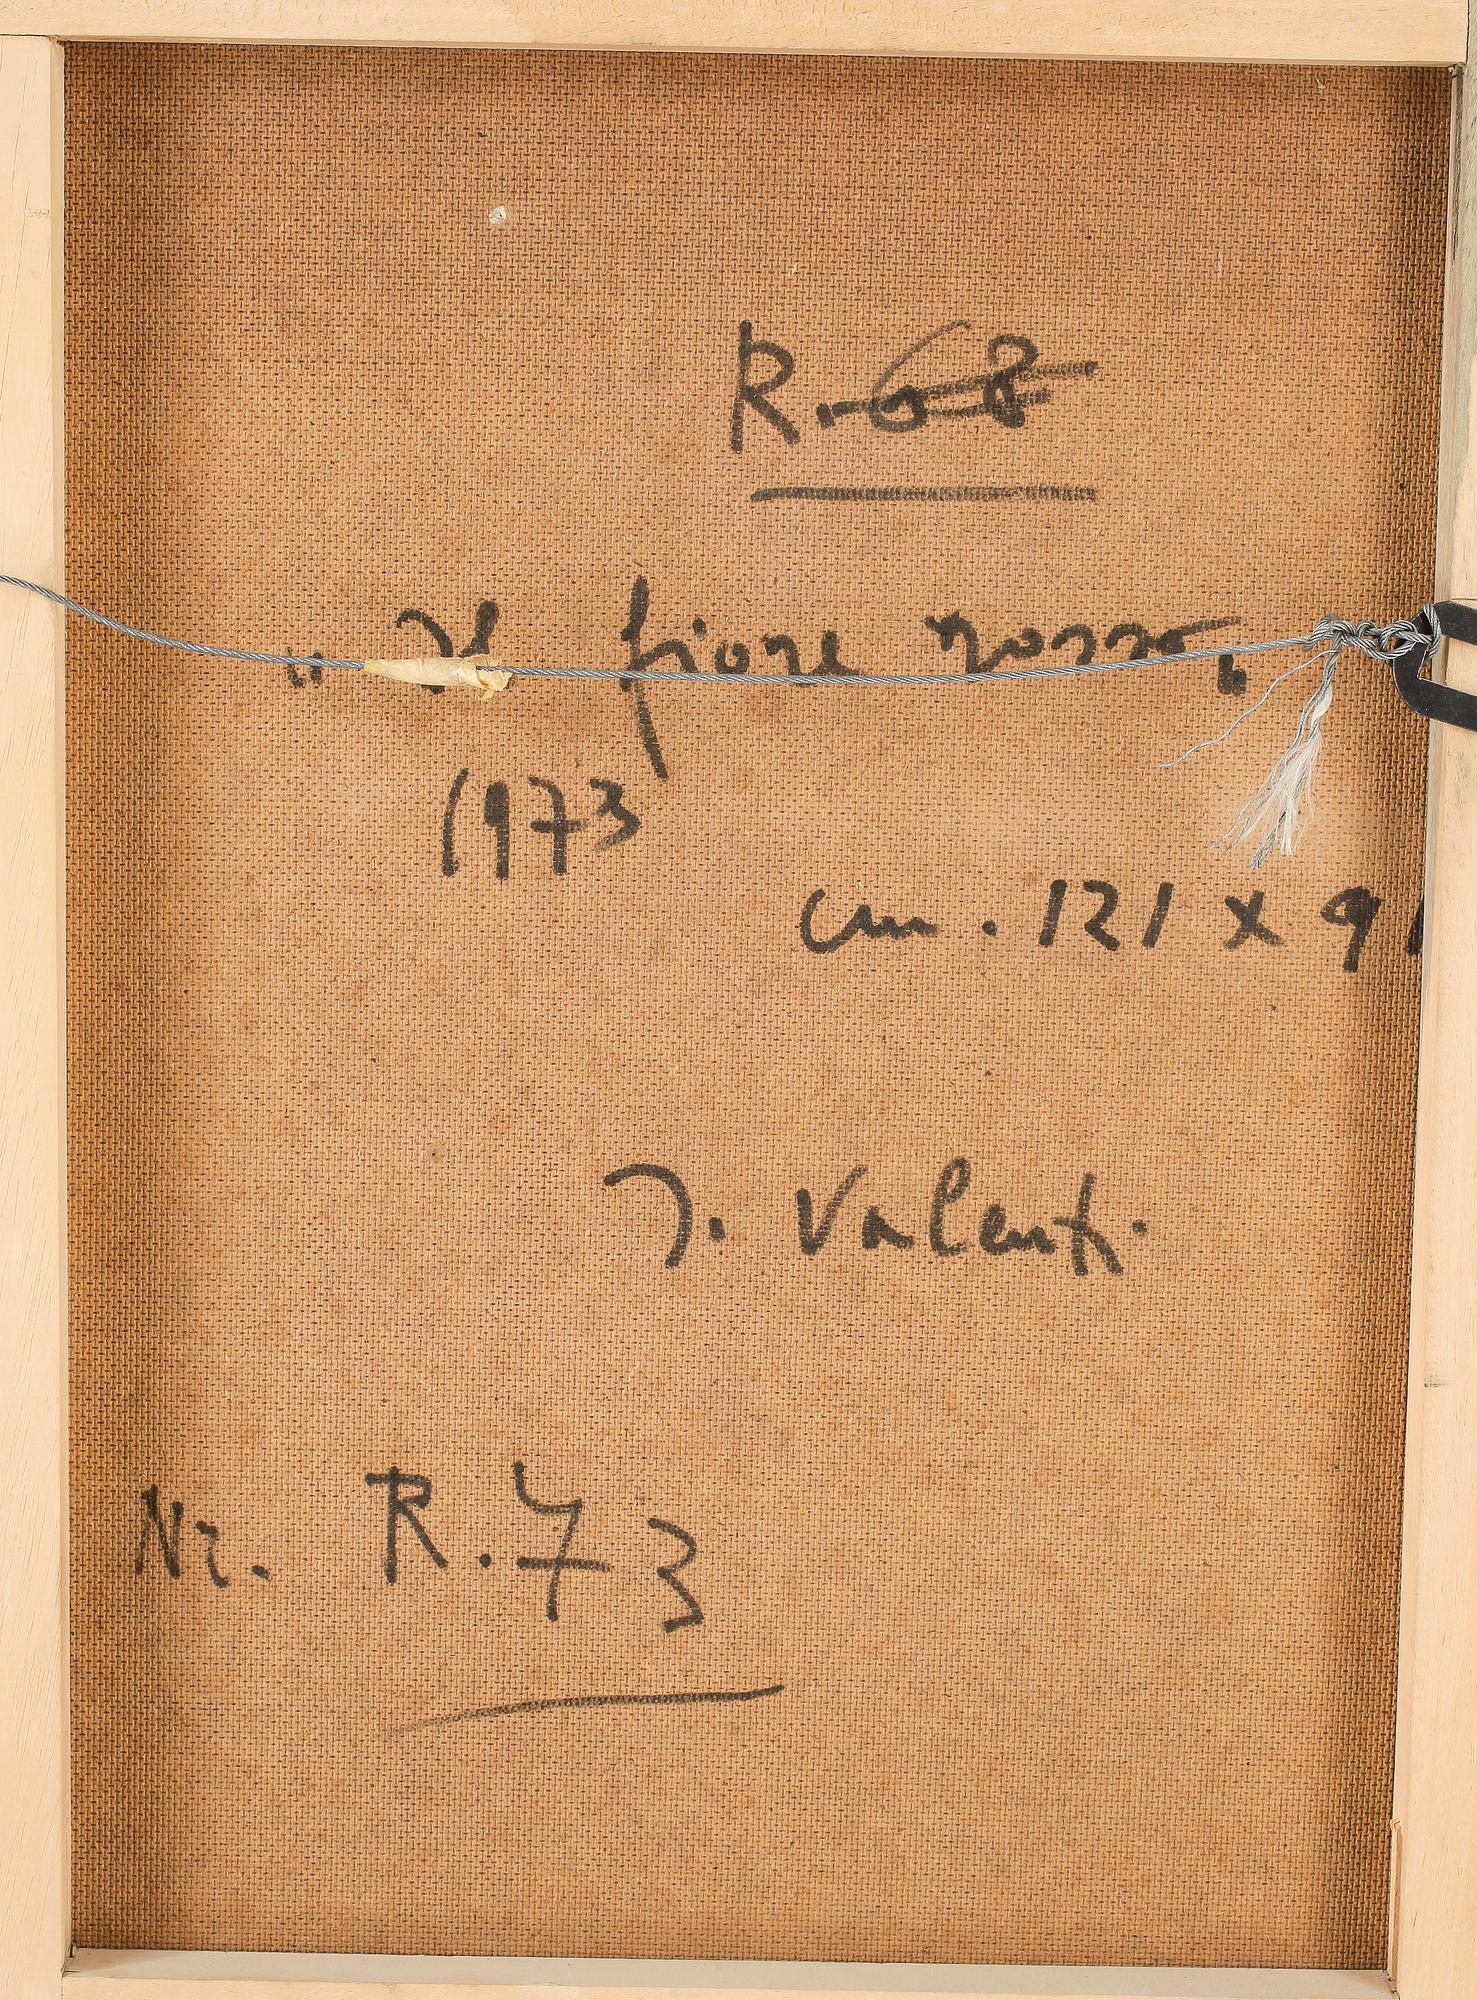 R.68
"Il fiore rosso"
1973
cm. 121 x 91
I. Valenti
Nr. R.73